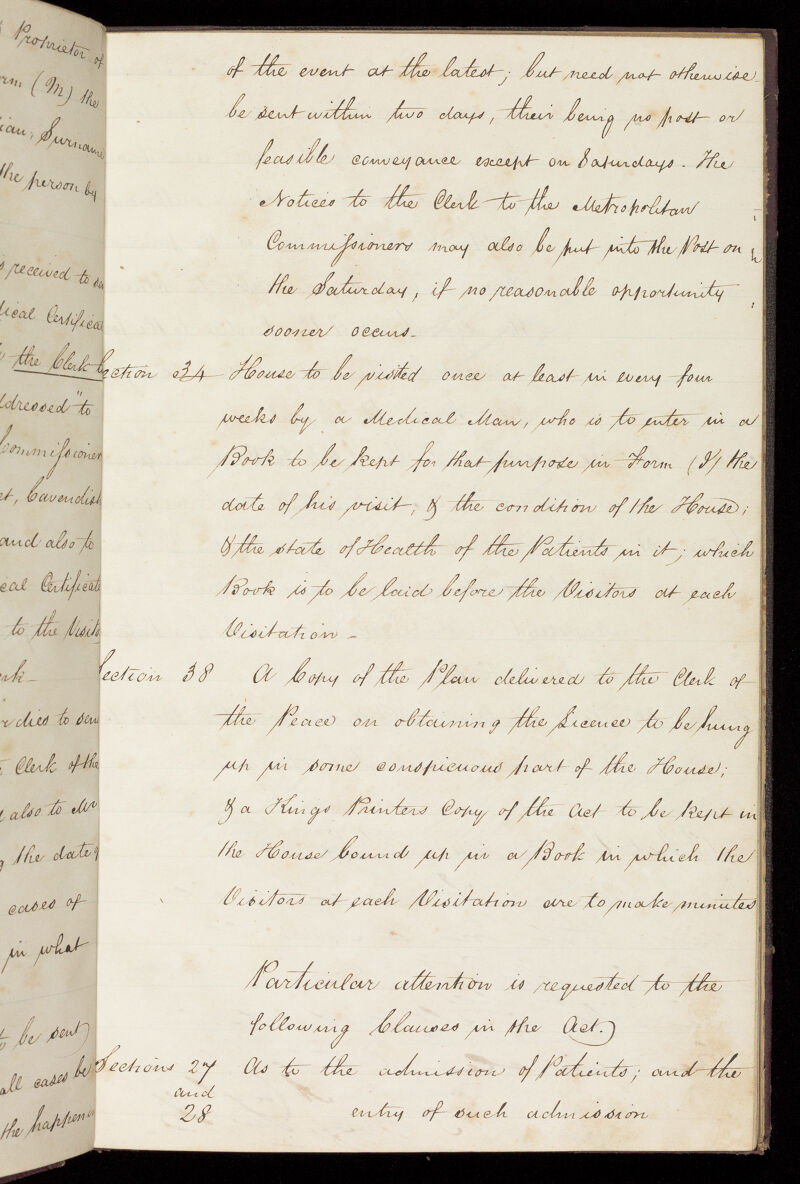 Proprietor of
(M) the
Surname
the person by
received to
Certificat
the Clerk
to
Commissioner
Cavendish
and also to
Certificate
to the
dies to
Clerk of the
also to Mr
the date of
cases of
in what
to be sent)
all cases be
the
of the event at the latest; but need not otherwise
be sent within two days, their being no post or
feasible conveyance except on Saturdays. The
Notices to the Clerk to the Metropolitan
Commissioners may also be put into the Post on
the Saturday, if no reasonable opportunity
sooner occurs.
Section 34 House to be visited once at least in every four
weeks by a Medical Man, who is to enter in a
Book to be kept for that purpose in Form (I) the
date of his visit, & the condition of the House;
& the state of Health of the Patients in it; which
Book is to be laid before the Visitors at each
Visitation –
Section 38 A Copy of the Plan delivered to the Clerk of
the Peace on obtaining the Licence to be hung
up in some conspicuous part of the House;
& a Kings Printers Copy of the Act to be kept in
the House bound up in a Book in which the
Visitors at each Visitation are to make minutes
Particular attention is requested to the
following Clauses in the Act)
Sections 27 As to the admission of Patients; and the
and
28 entry of such admission